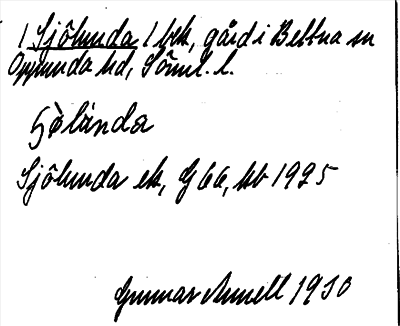 1 Sjölunda 1 bek, gård i Bettna sn
Oppunda hd, Söml. l.
Sjölunda ek, G 66, kb 1925
Gunnar Annell 1930